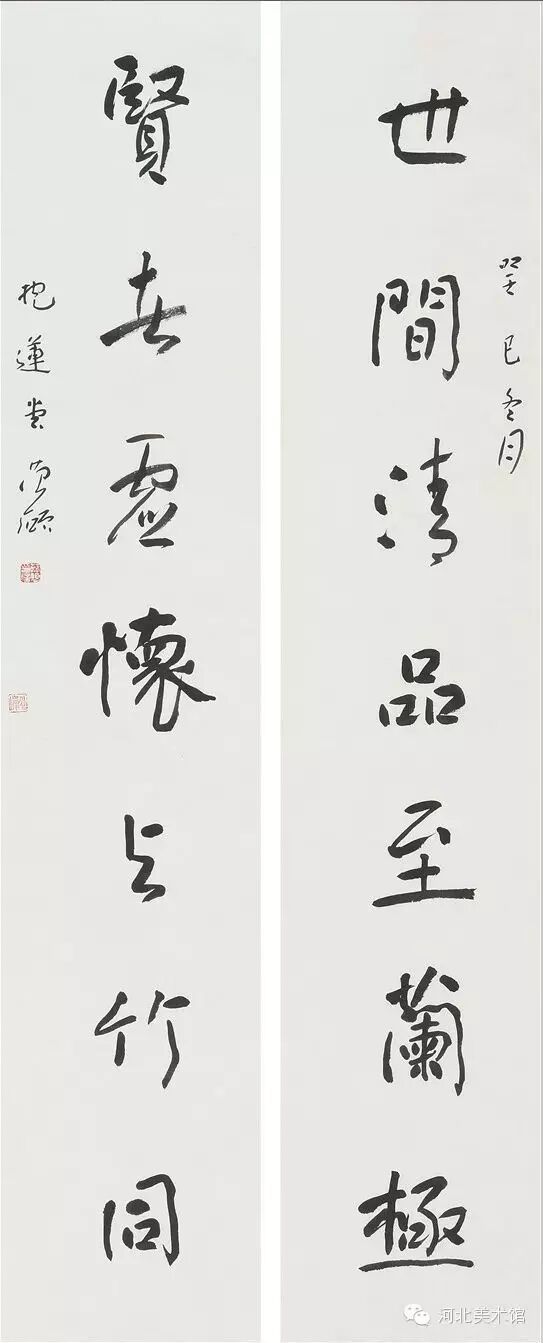 癸巳冬月
世間清品至蘭極
賢者虛懷与竹同
抱蓮堂
河北美术馆